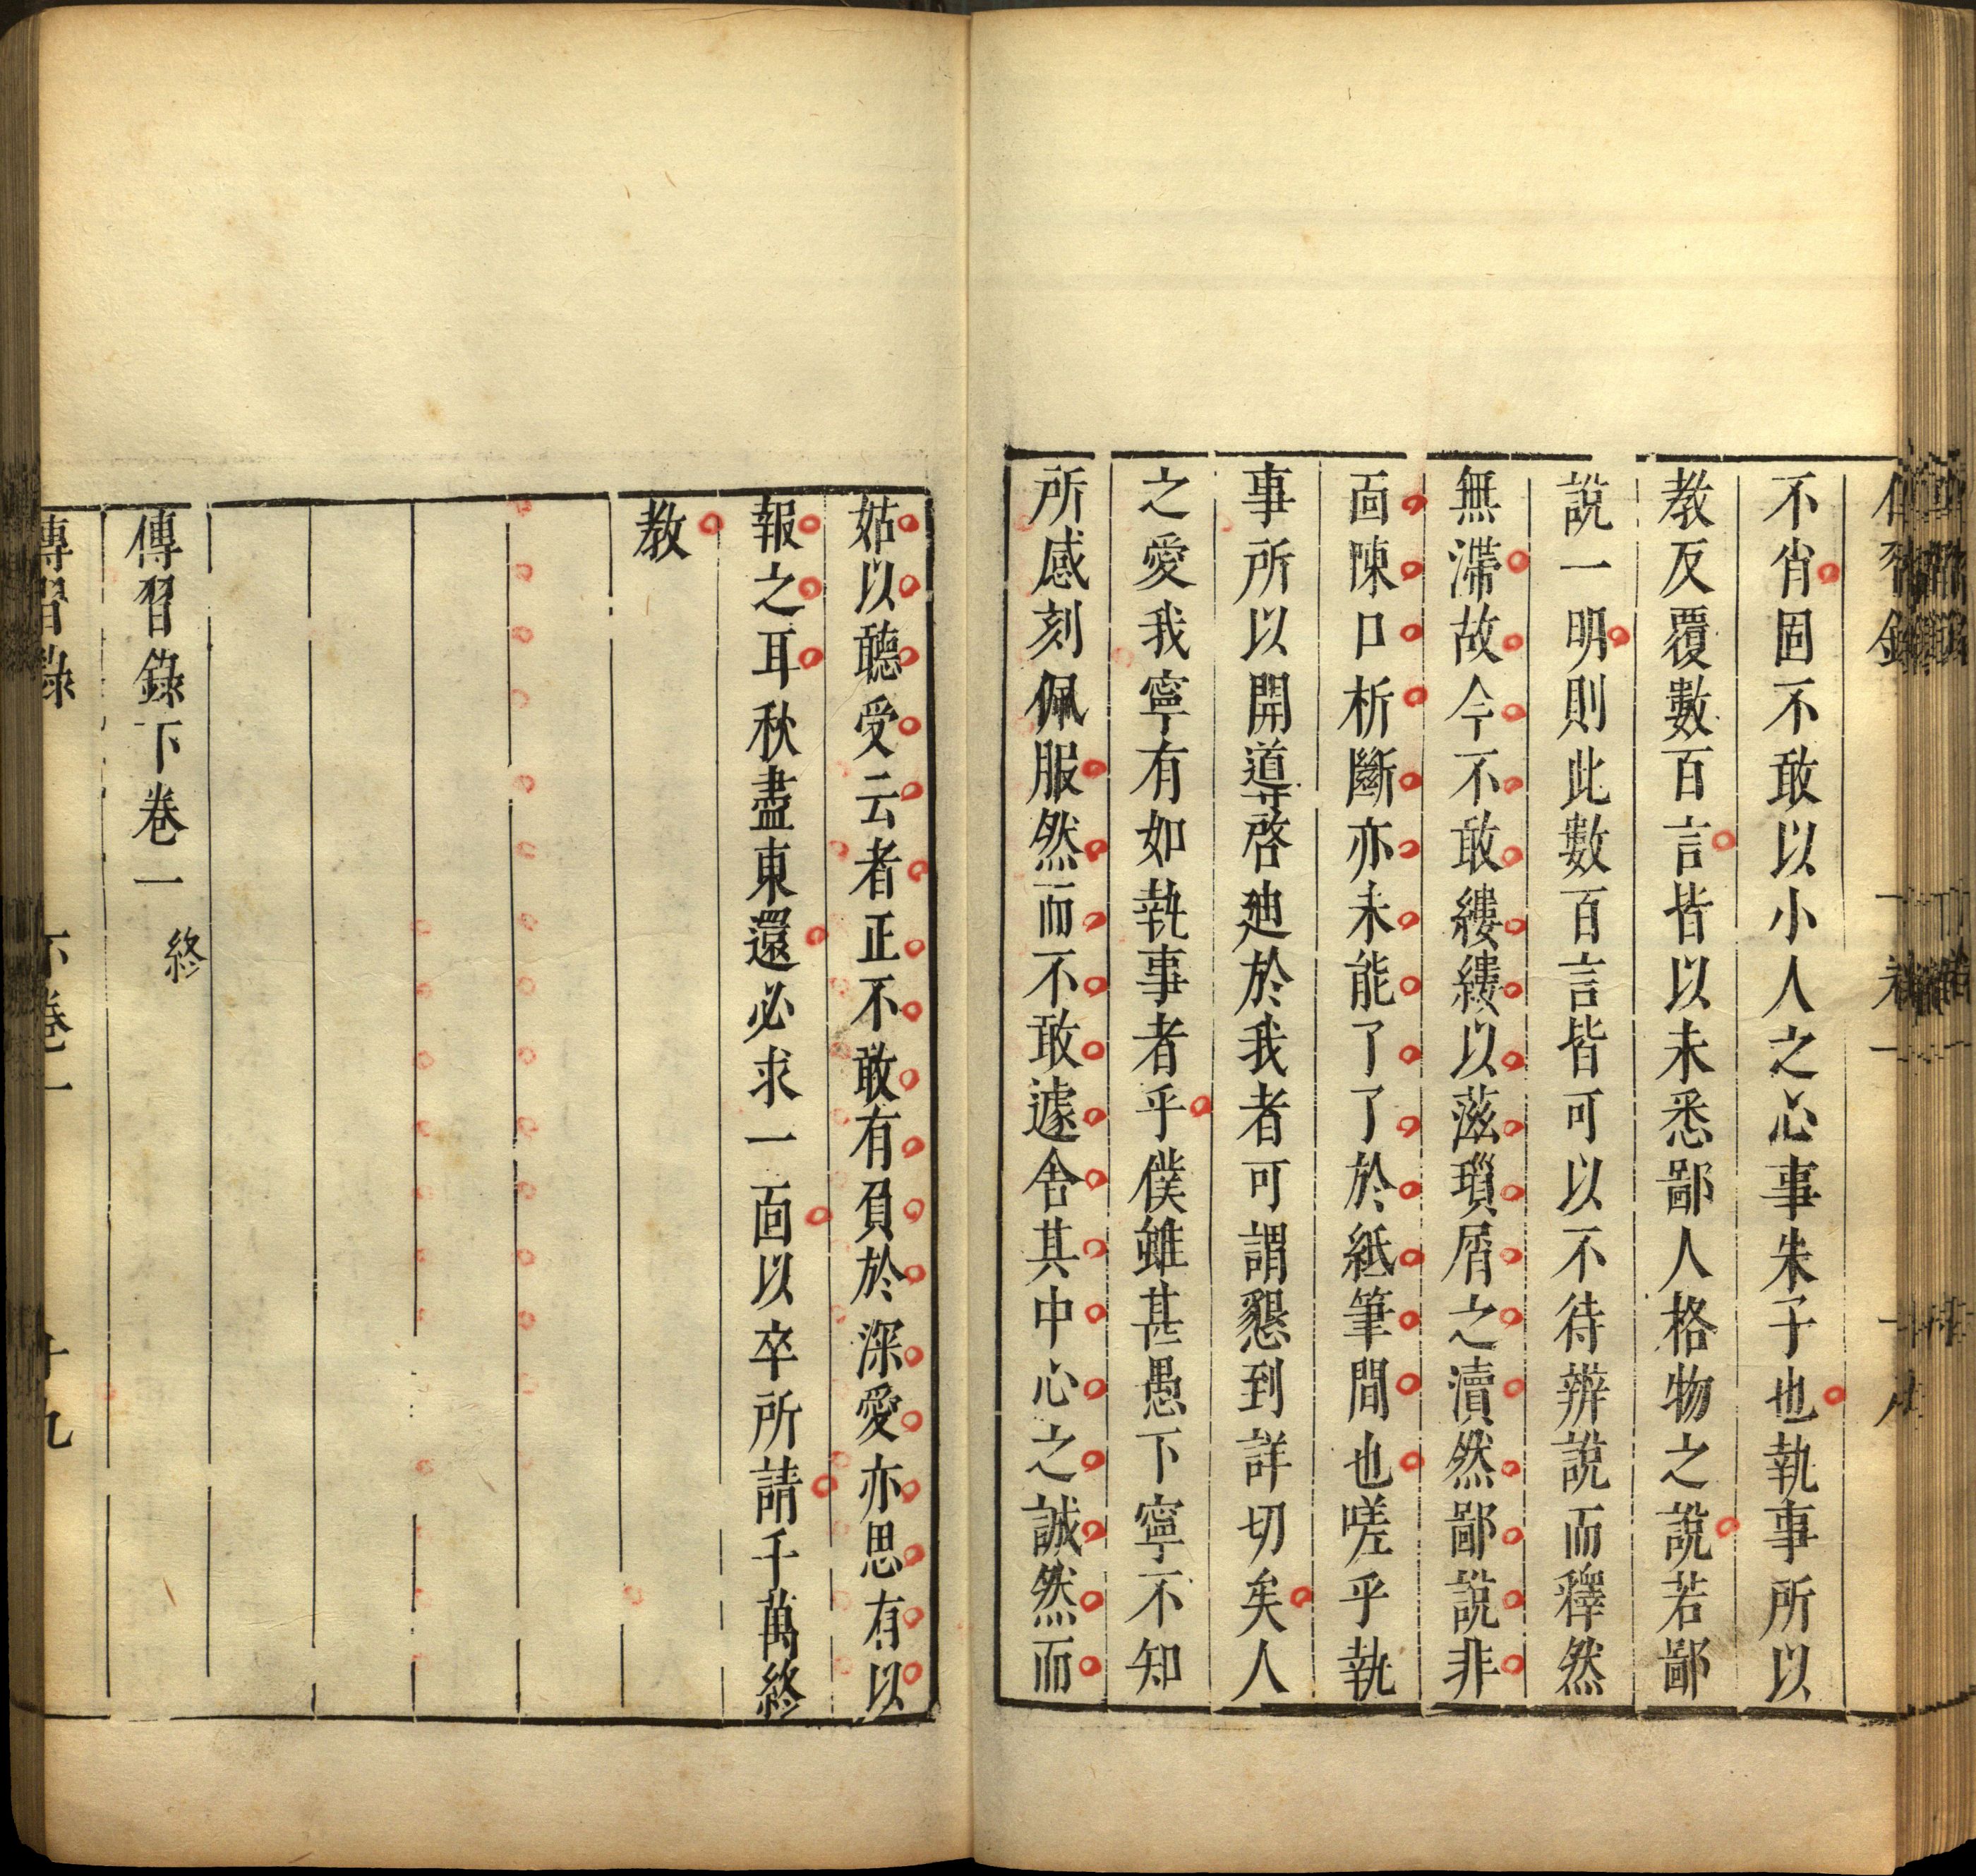 不肖固不敢以小人之心事朱子也執事所以
教反覆數百言皆以未悉鄙人格物之說若鄙
說一明則此數百言皆可以不待辨說而釋然
無滯故今不敢縷縷以滋瑣屑之瀆然鄙說非
面陳口析斷亦未能了了於紙筆間也嗟乎執
事所以開導啓廸於我者可謂懇到詳切矣人
之愛我寧有如執事者乎僕雖甚愚下寧不知
所感刻佩服然而不敢遽舍其中心之誠然而
姑以聽受云者正不敢有負於深愛亦思有以
報之耳秋盡東還必求一面以卒所請千萬終
教
傳習錄下卷一 終
傳習錄 下卷一 十九